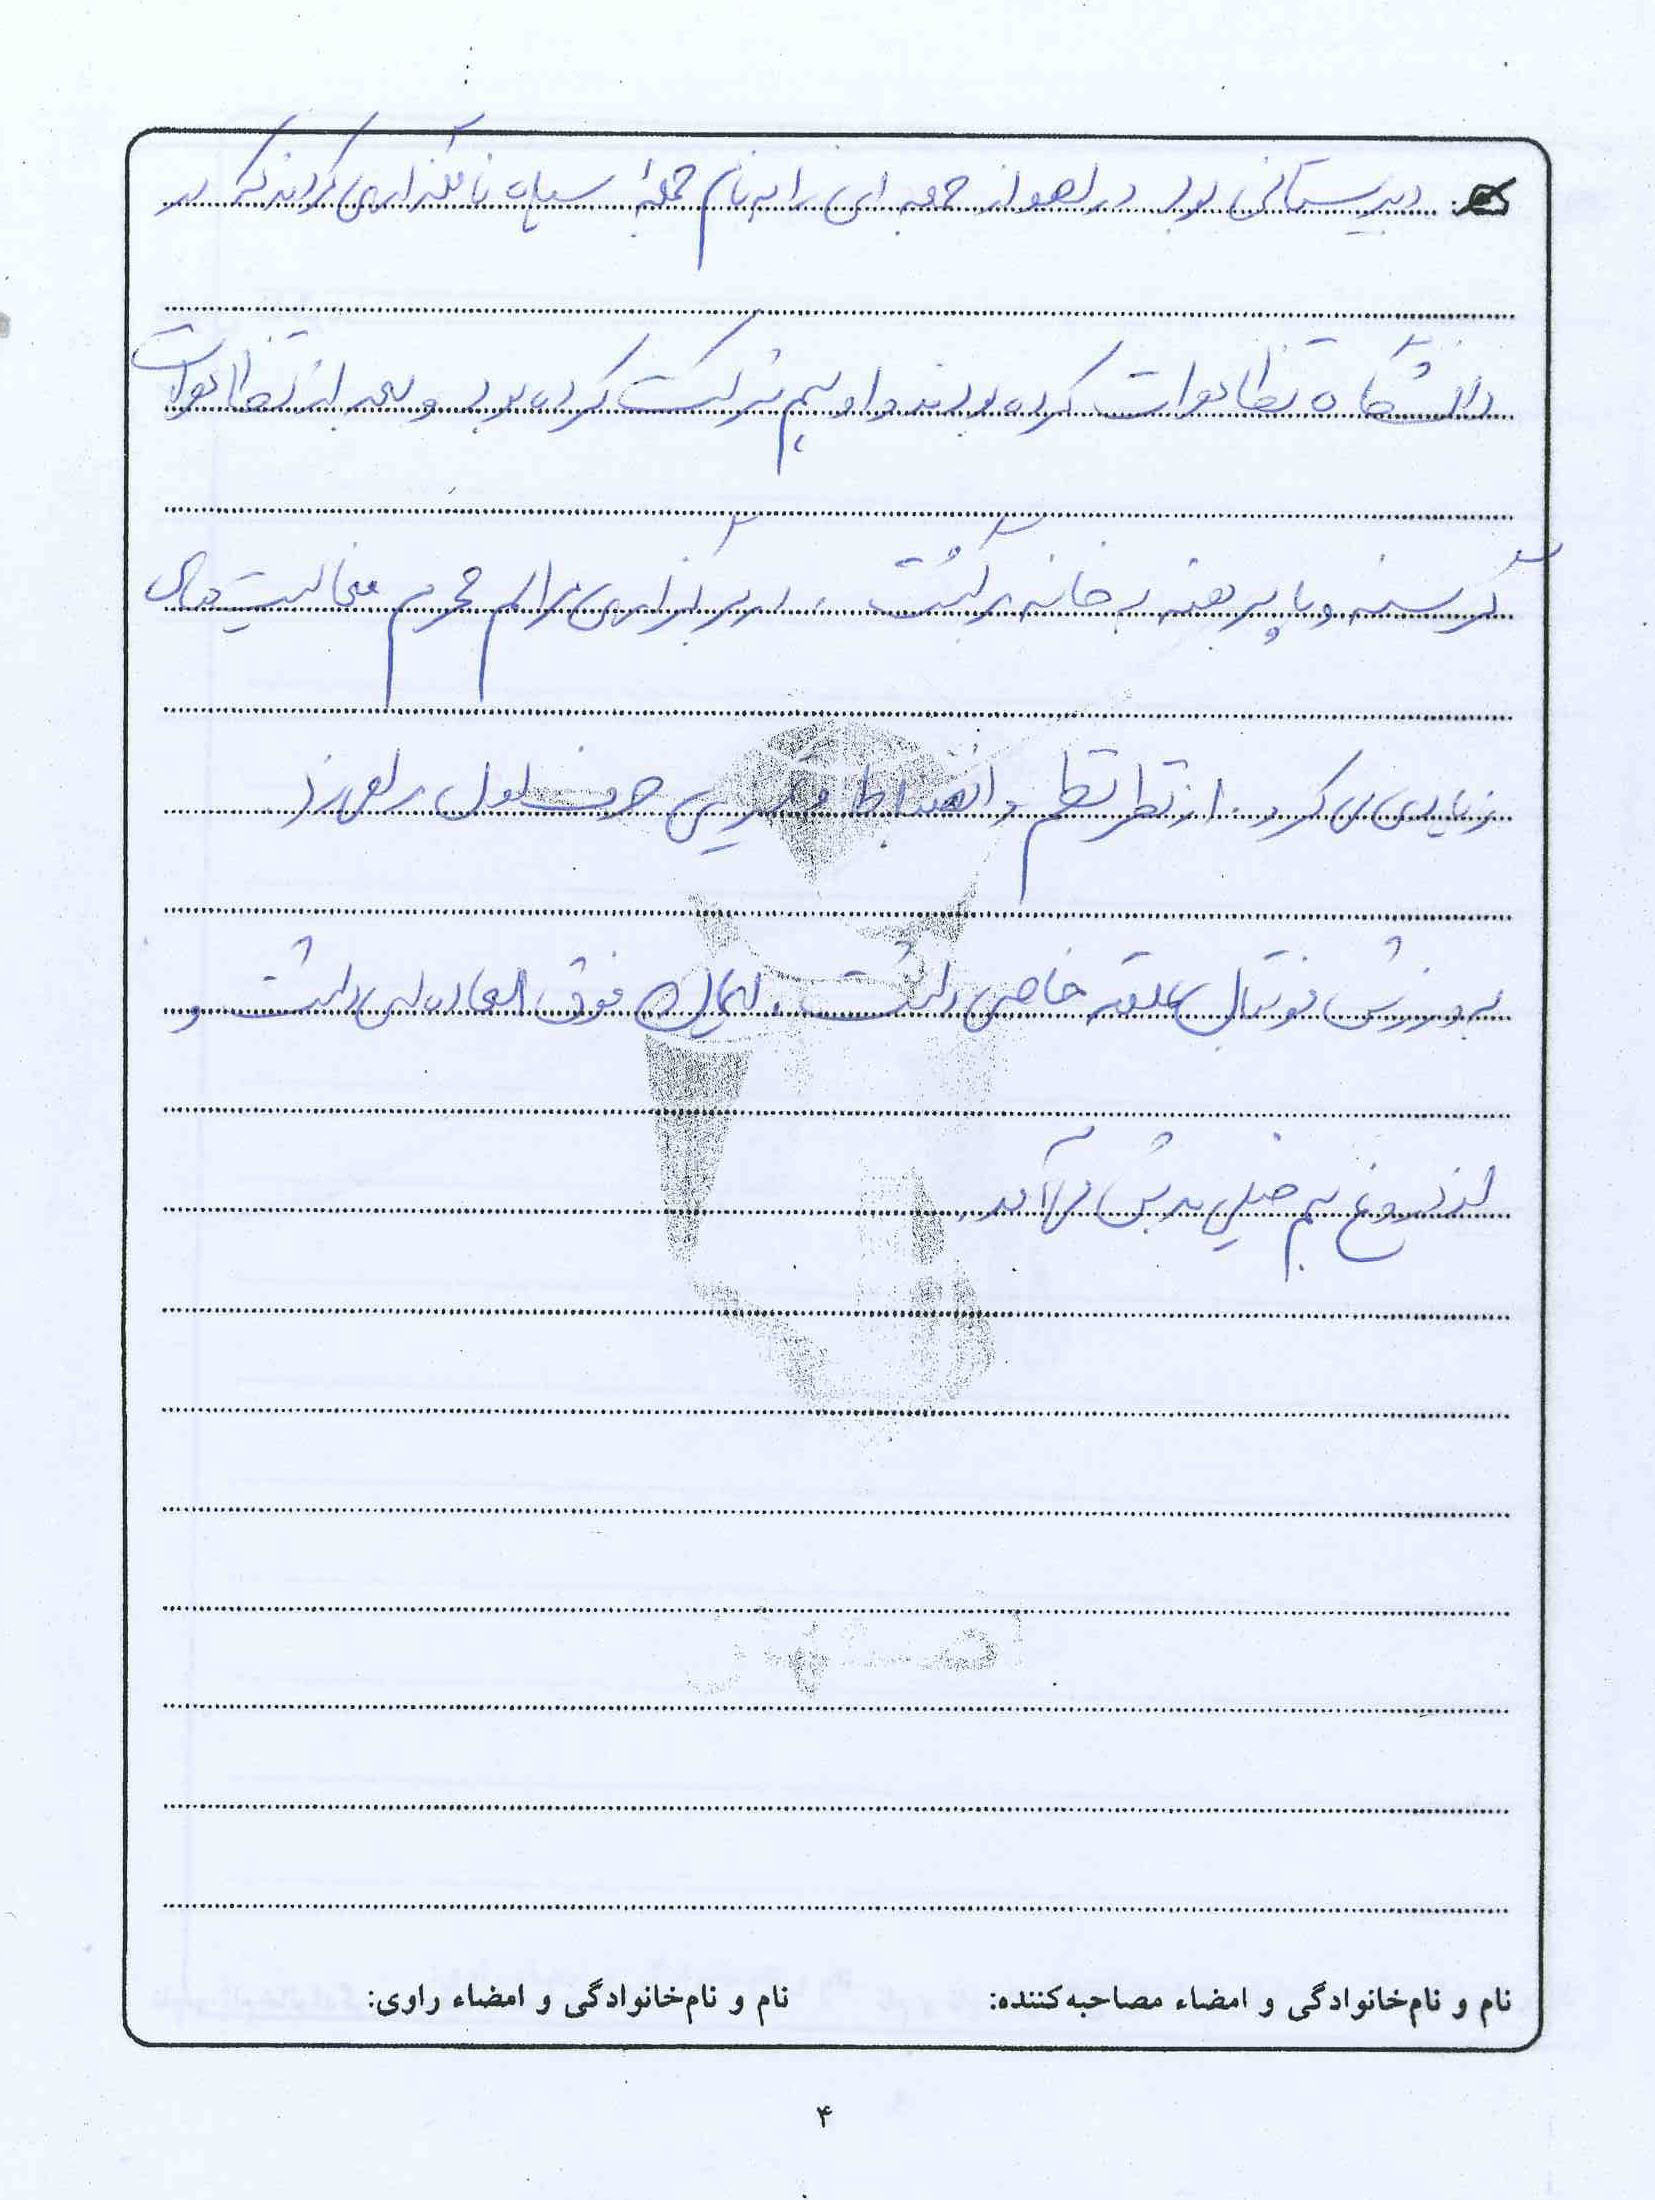 دبیرستانی بود در اهواز جمعه ای را به نام جمعهٔ سیاه نامگذاری کردند که در
دانشگاه تظاهرات کرده بودند و او هم شرکت کرده بود و بعد از تظاهرات
گرسنه و پابرهنه به خانه برگشت ، در برگزاری مراسم محرم فعالیت های
زیادی می کرد . از نظر نظم و انضباط حرف اول را می زد
به ورزش فوتبال علاقه خاصی داشت . ایمان فوق العاده ای داشت و
از دروغ هم خیلی بدش می آمد .
نام و نام‌خانوادگی و امضاء مصاحبه‌کننده: نام و نام‌خانوادگی و امضاء راوی:
۴